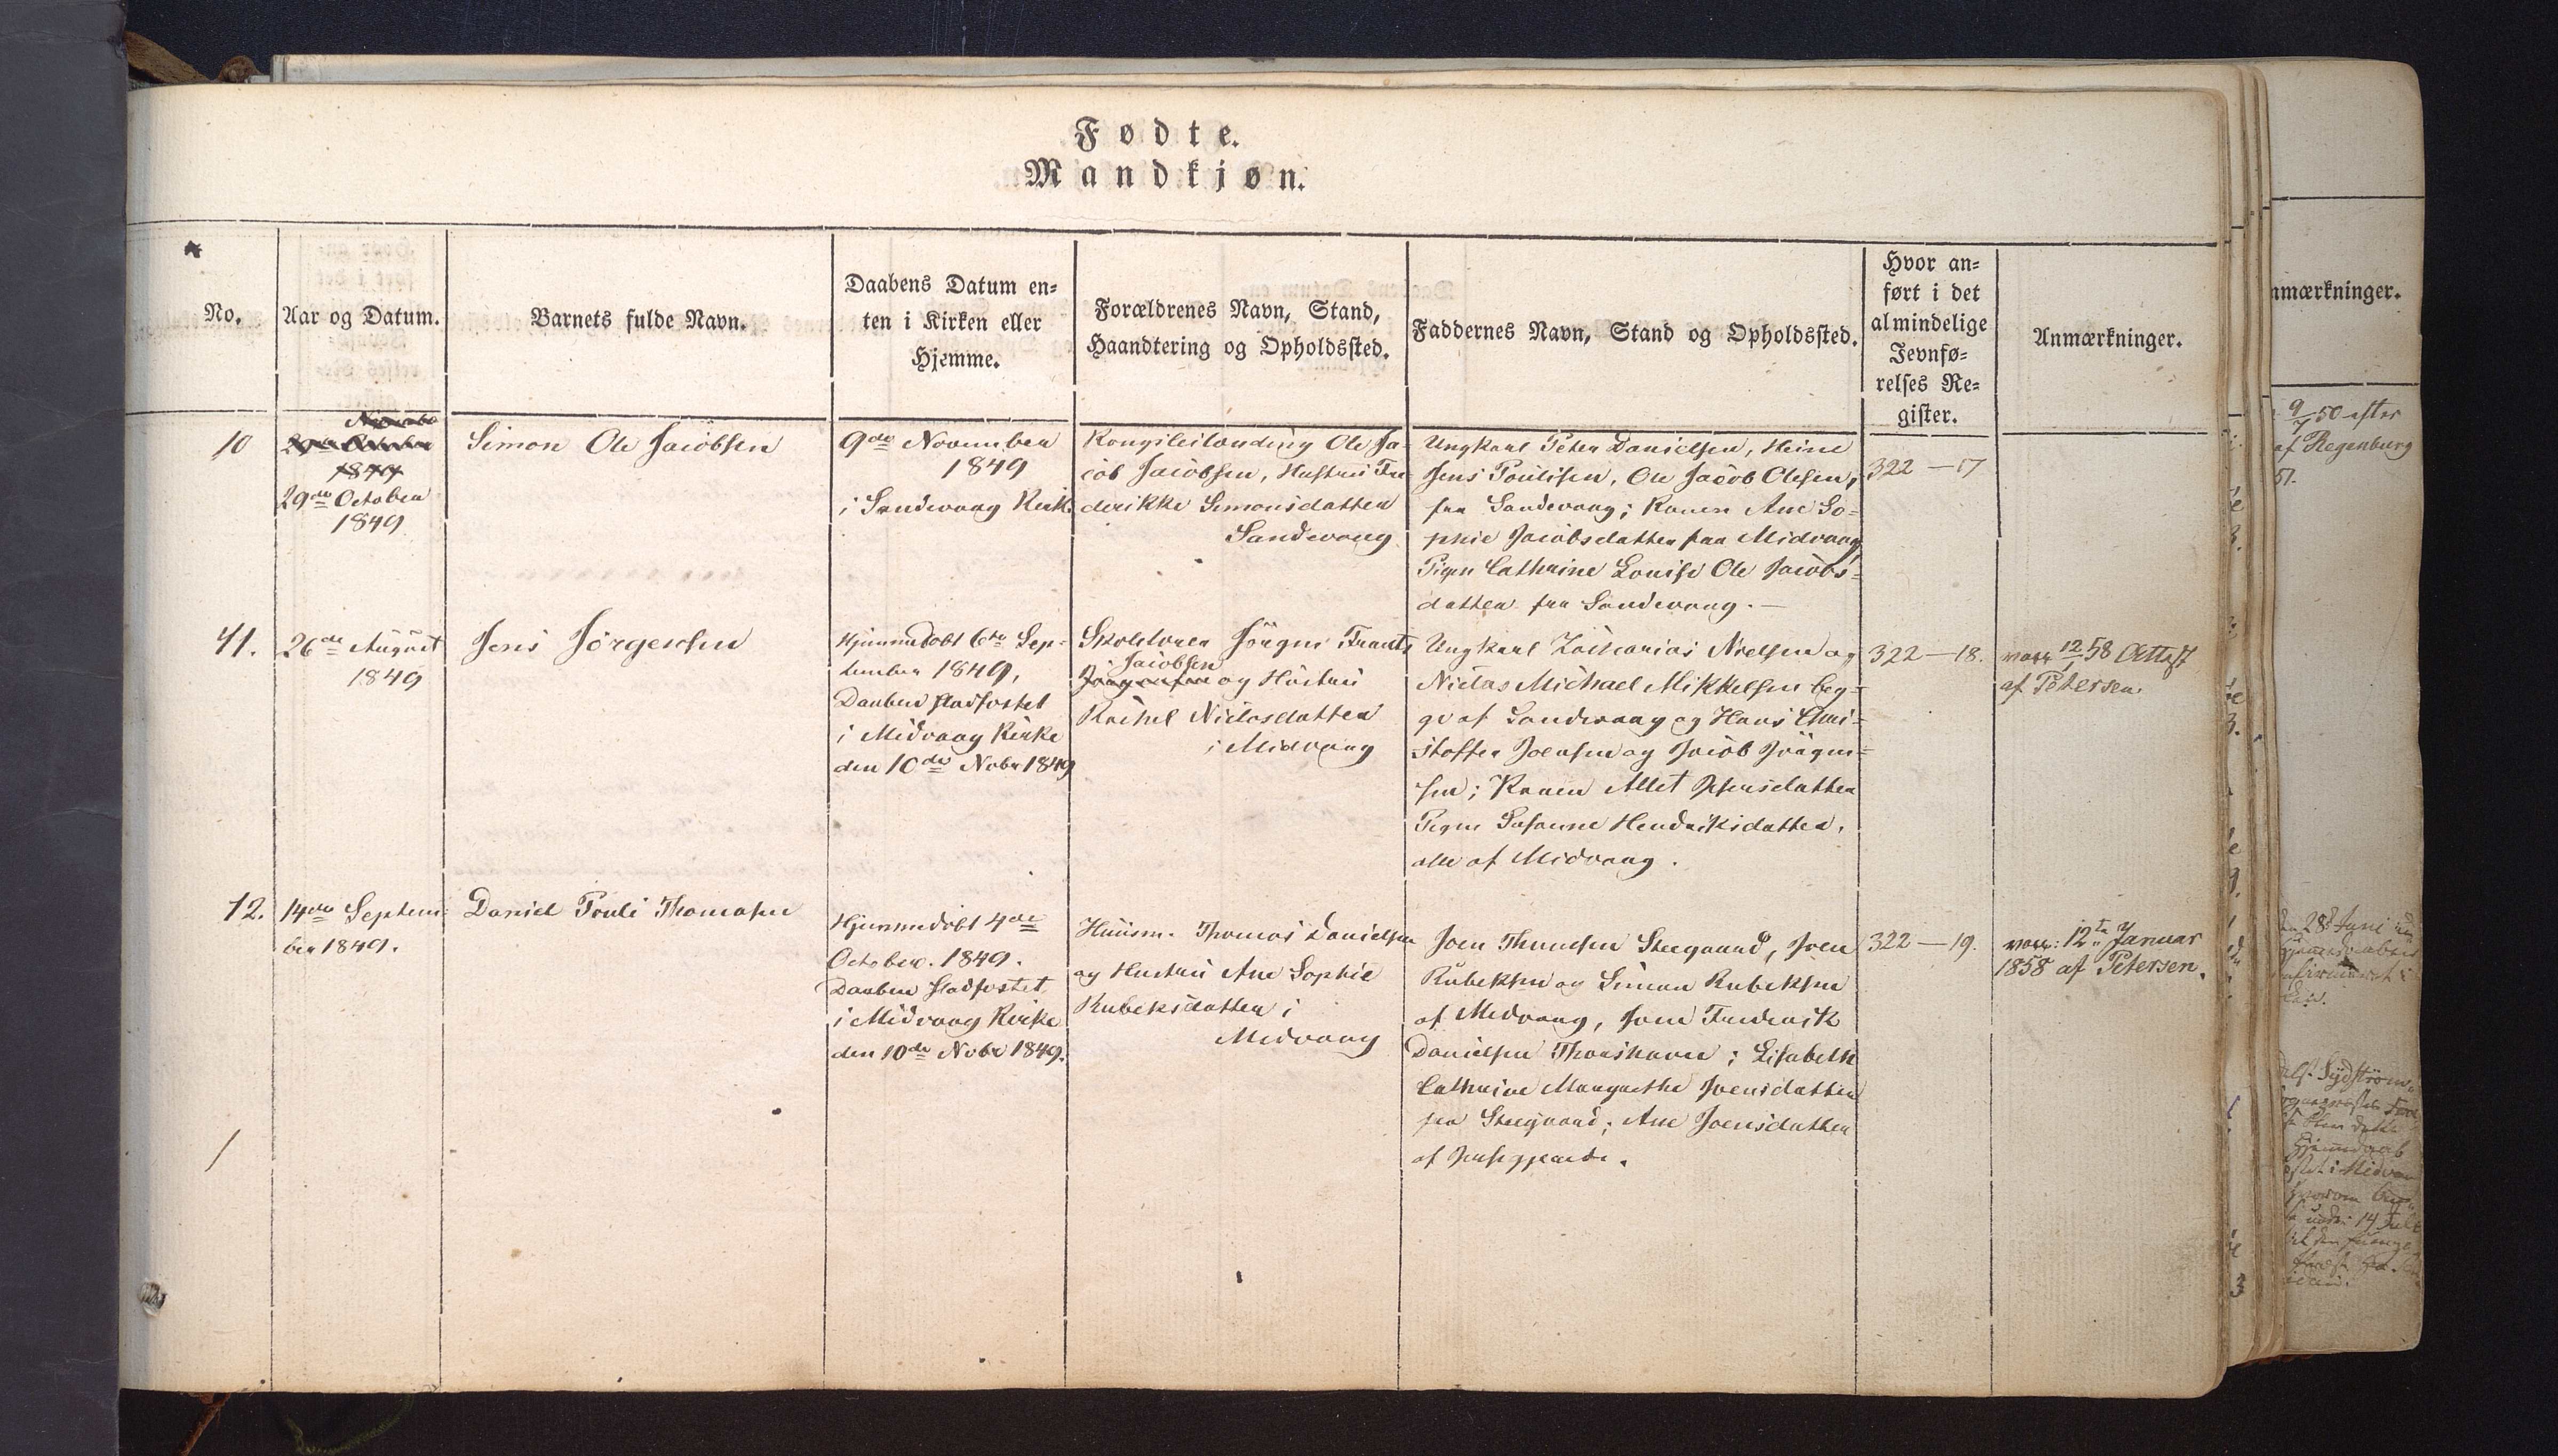 Fødte.
Mandkjøn.
No.
Aar og Datum.
Barnets fulde Navn.
Daabens Datum en-
ten i Kirken eller
Hjemme.
Forældrenes Navn, Stand,
Haandtering og Opholdssted.
Faddernes Navn, Stand og Opholdssted.
Hvor an-
ført i det
almindelige
Jevnfø-
relses Re-
gister.
Anmærkninger.
10
29de October
1849
Simon Ole Jacobsen
9de November
1849
i Sandevaag Kirke
Kongsleilænding Ole Ja-
cob Jacobsen, Hustru Fre
derikke Simonsdatter
Sandevaag
Ungkarl Peter Danielsen, Heine
Jens Poulisen, Ole Jacob Olesen,
fra Sandevaag; Konen Ane So-
phie Jacobsdatter fra Midvaag,
Pigen Cathrine Louise Ole Jacobs-
datter fra Sandevaag. —
322 — 17
11.
26de August
1849
Jens Jørgensen
Hjemmedøbt 6te Sep-
tember 1849,
Daaben stadfæstet
i Midvaag Kirke
den 10de Nobr 1849
Skolelærer Jörgen Frants
Jacobsen
og Hustru
Rachel Niclasdatter
i Midvaag
Ungkarl Zacharias Nielsen og
Niclas Michael Mikkelsen beg-
ge af Sandevaag og Hans Chri-
stoffer Joensen og Jacob Jörgen-
sen; Konen Allet
Pigen Susanne Hendriksdatter,
alle af Midvaag.
322 — 18.
vacc 12/1 58 Attest
af Petersen.
12.
14de Septem
ber 1849.
Daniel Pouli Thomasen
Hjemmedøbt 4de
October. 1849.
Daaben stadfæstet
i Midvaag Kirke
den 10de Nobr 1849.
Huusm. Thomas Danielsen
og Hustru Ane Sophie
Rubeksdatter i
Midvaag
Joen Thomesen Steegaard, Joen
Rubeksen og Simon Rubeksen
af Midvaag, Joen Frederik
Danielsen Thorshavn; Lisabeth
Cathrine Margrethe Joensdatter
fra Steegaard; Ane Joensdatter
af
322 — 19.
vacc: 12te Januar
1858 af Petersen.
nmærkninger.
9/7 50 efter
af Regenburg
51.
28de Juni